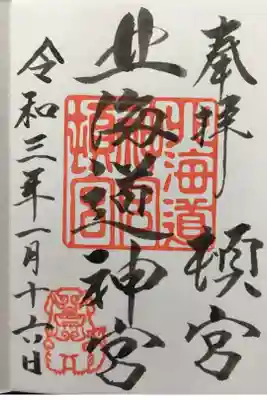 奉拝
頓宮
北海道神宮
令和三年一月十六日
北海道
神宮
頓宮